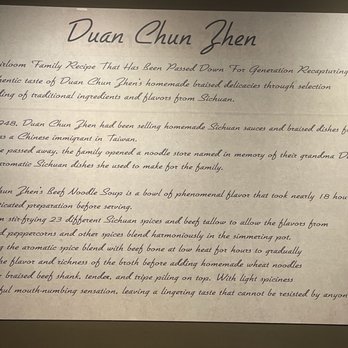 Duan Chun Zhen
irloom Family Recipe That Has Been Passed Down For Generation Recapturing
hentic taste of Duan Chun Zhen's homemade braised delicacies through selection
ding of traditional ingredients and flavors from Sichuan.
948, Duan Chun Zhen had been selling homemade Sichuan sauces and braised dishes fo
as a Chinese immigrant in Taiwan.
e passed away, the family opened a noodle store named in memory of their grandma D
aromatic Sichuan dishes she used to make for the family.
hun Zhen's Beef Noodle Soup is a bowl of phenomenal flavor that took nearly 18 hour
icated preparation before serving.
n stir-frying 23 different Sichuan spices and beef tallow to allow the flavors from
d peppercorns and other spices blend harmoniously in the simmering pot.
g the aromatic spice blend with beef bone at low heat for hours to gradually
he flavor and richness of the broth before adding homemade wheat noodles
r braised beef shank, tendon, and tripe piling on top. With light spiciness
ful mouth-numbing sensation, leaving a lingering taste that cannot be resisted by anyon